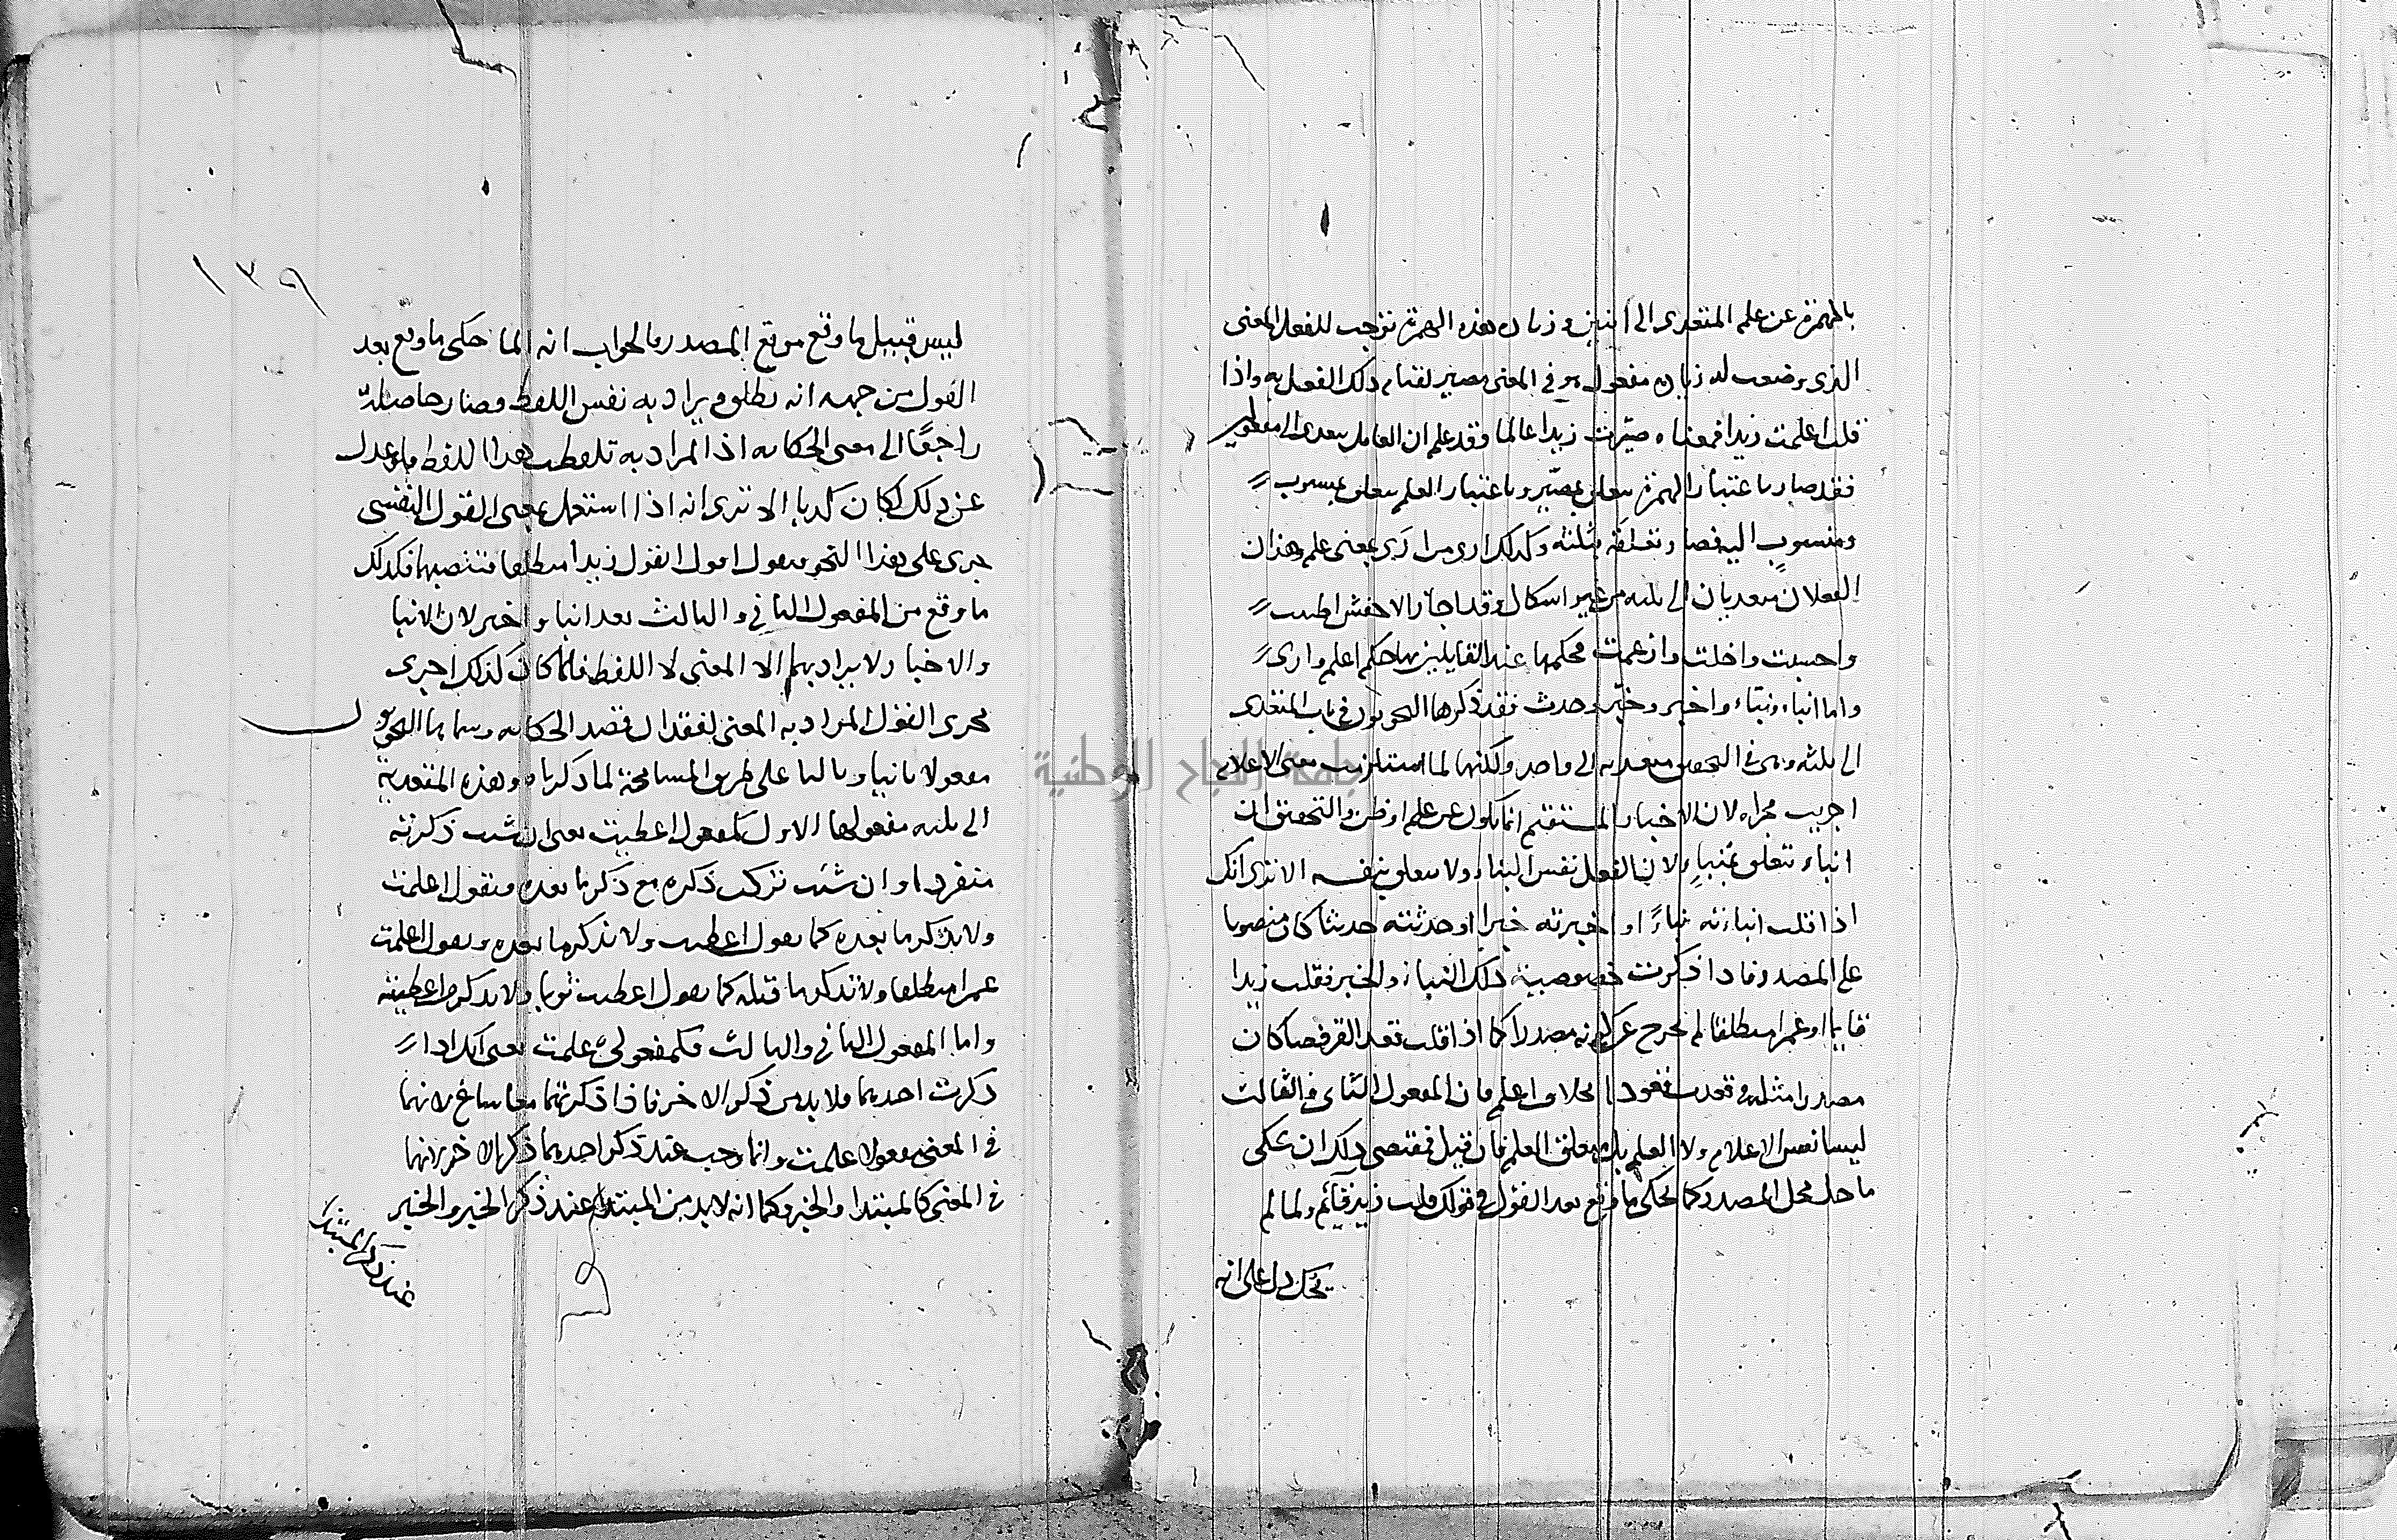 بالهمزة عن علم المتعدى الى اثنين وزيادة هذه الهمزة توجب للفعل المعنى
الذى وضعت له زيادة مفعول هو فى المعنى مصير لقيام ذلك الفعل به واذا
قلت اعلمت زيدا فمعناه صيّرت زيدا عالما وقد علم ان العامل يتعدى الى معلولين
فقد صار باعتبار الهمزة يتعلق بمصيّر وباعتبار العلم يتعلق بمنسوب
ومنسوب اليه فصار متعلقه بثلثة وكذلك ارى من رأى بمعنى علم وهذان
الفعلان يتعديان الى ثلثه من غير اشكال وقد اجاز الاخفش اظننت
واحسبت واخلت وازعمت فحكمها عند القايلين بها حكم اعلم وارى
واما انباء ونباء واخبر وخبّر وحدث فقد ذكرها النحويون فى باب المتعدى
الى ثلثه وهى فى التحقيق متعديه الى واحد ولكنها لما استلزمت معنى الاعلام
اجريت مجراه لان الاخبار المستقيم انما يكون عن علم او ظن والتحقيق ان
انباء تتعلق بمنباء ولان الفعل نفس النباء ولا يتعلق بنفسه الا ترى انك
اذا قلت انباءته نباءً او اخبرته خبرا او حدثته حديثا كان منصوبا
على المصدر فاذا ذكرت خصوصية ذلك النباء والخبر فقلت زيدا
قايما او عمرا منطلقا لم يخرج عن كونه مصدرا كما اذا قلت قعد القرفصا كان
مصدرا مثله فى قعدت قعودا بخلاف اعلم فان المفعول الثانى والثالث
ليسا نفس الاعلام ولا العلم بل متعلق العلم فان قيل فمقتضى ذلك ان يحكى
ما حل محل المصدر كما يحكى ما وقع بعد القول فى قولك قلت زيد قايم ولما لم
يحك دل على انه
جامعة النجاح الوطنية
١٣٩
ليس قبيل ما وقع موقع المصدر فالجواب انه انما حكى ما وقع بعد
القول من جهه انه يطلق ويراد به نفس اللفظ فصار حاصله
راجعًا الى معنى الحكايه اذ المراد به تلفظت بهذا اللفظ فلو عدل
عن ذلك لكان كذبا الا ترى انه اذا استعمل بمعنى القول النفسى
جرى على هذا النحو فتقول اقول اتقول زيدا منطلقا فتنصبهما فكذلك
ما وقع من المفعول الثانى والثالث بعد انبا واخبر لان الانبا
والاخبار لا يراد بهما الا المعنى لا اللفظ فلما كان كذلك اجرى
مجرى القول المراد به المعنى لفقدان قصد الحكايه وسماها النحويون
مفعولا ثانيا وثالثا على طريق المسامحة لما ذكرناه وهذه المتعدية
الى ثلثه مفعولها الاول كمفعول اعطيت يعنى ان شئت ذكرته
منفردا وان شئت تركت ذكره مع ذكر ما بعده فتقول اعلمت
ولا تذكر ما بعده كما تقول اعطيت ولا تذكر ما بعده وتقول اعلمت
عمرا منطلقا ولا تذكر ما قبله كما تقول اعطيت ثوبا ولا تذكر من اعطيته
واما المفعول الثانى والثالث فكمفعولى علمت يعنى انك اذا
ذكرت احدهما فلا بد من ذكر الاخر فاذا ذكرتهما معا ساغ لانهما
فى المعنى مفعولا علمت وانما وجب عند ذكر احدهما ذكر الاخر لانهما
فى المعنى كالمبتدا والخبر وكما انه لابد من المبتدا عند ذكر الخبر والخبر
عند ذكر المبتدا